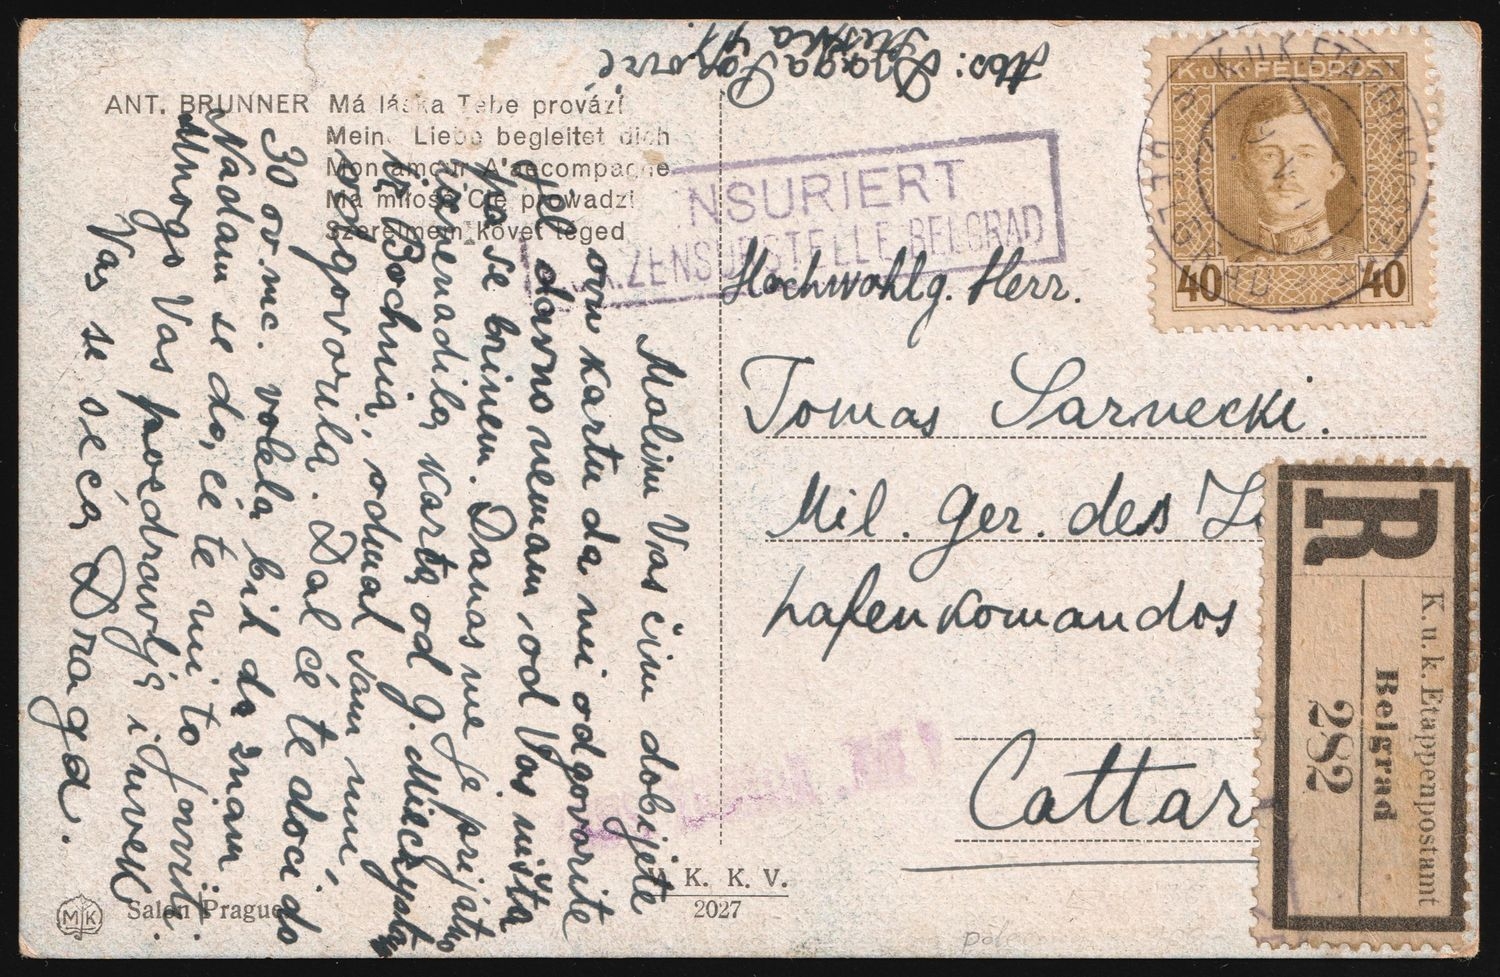 Abs: Draga
ANT. BRUNNER Má láska Tebe provází
Meine Liebe begleitet dich
Mon amour A'accompagne
Ma miłość Cię prowadzi
Szerelmem követ téged
ZENSURIERT
ZENSURSTELLE BELGRAD
K.U.K. FELDPOST
40 40
Hochwohlg. Herr.
Tomas Sarnecki.
Mil. Ger. des
hafenkomandos
Cattar
R
K. u. k. Etappenpostamt
Belgrad
282
Molim Vas čim dobijete
ovu kartu da mi odgovorite
jel davno nemam od Vas ništa
pa se brinem. Danas me je prijatno
iznenadila karta od g. Mieczysla
iz Bochnia, odmah sam mu
odgovorila. Dal će te doći do
30 ov. mc. volela bih da znam
Nadam se da će te mi to javiti.
Mnogo Vas pozdravlja i uvek
Vas se seća Draga.
MK
Salon Prague
K. K. V.
2027